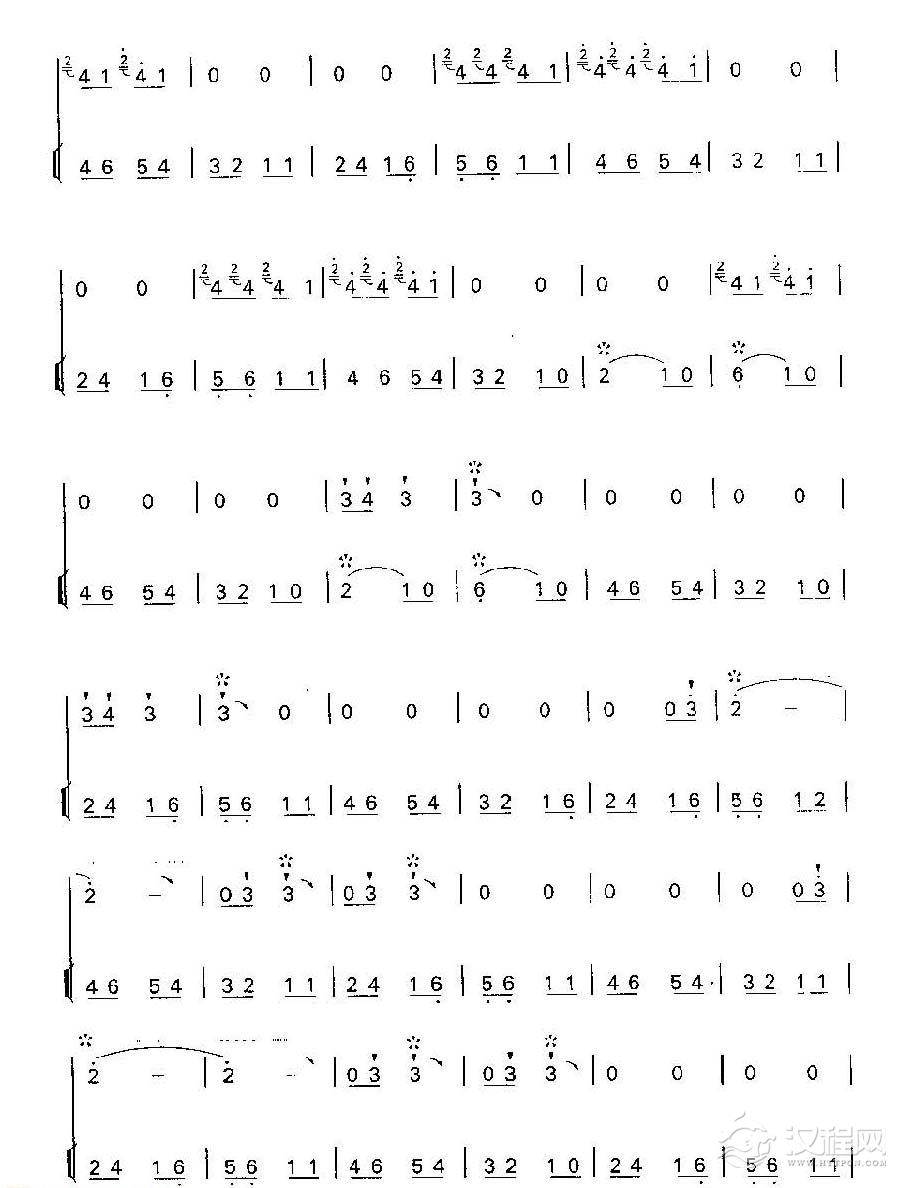 2 4 1 2 4 1 | 0 0 | 0 0 | 2 4 2 4 2 4 1 | 2 4 2 4 2 4 1 | 0 0 |
4 6 5 4 | 3 2 1 1 | 2 4 1 6 | 5 6 1 1 | 4 6 5 4 | 3 2 1 1 |
0 0 | 2 4 2 4 2 4 1 | 2 4 2 4 2 4 1 | 0 0 | 0 0 | 2 4 1 2 4 1 |
2 4 1 6 | 5 6 1 1 | 4 6 5 4 | 3 2 1 0 | 2 1 0 | 6 1 0 |
0 0 | 0 0 | 3 4 3 | 3 0 | 0 0 | 0 0 |
4 6 5 4 | 3 2 1 0 | 2 1 0 | 6 1 0 | 4 6 5 4 | 3 2 1 0 |
3 4 3 | 3 0 | 0 0 | 0 0 | 0 0 3 | 2 - |
2 4 1 6 | 5 6 1 1 | 4 6 5 4 | 3 2 1 6 | 2 4 1 6 | 5 6 1 2 |
2 - | 0 3 3 | 0 3 3 | 0 0 | 0 0 | 0 0 3 |
4 6 5 4 | 3 2 1 1 | 2 4 1 6 | 5 6 1 1 | 4 6 5 4 | 3 2 1 1 |
2 - | 2 - | 0 3 3 | 0 3 3 | 0 0 | 0 0 |
2 4 1 6 | 5 6 1 1 | 4 6 5 4 | 3 2 1 0 | 2 4 1 6 | 5 6 1 1 |
汉程网
WWW.HTTPCN.COM